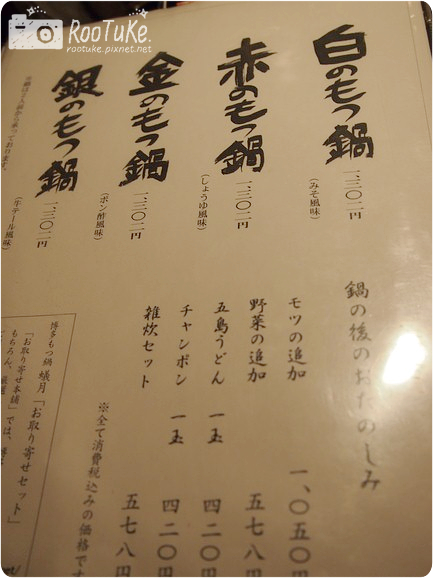 RooTuKe.
rootuke.pixnet.net
白のもつ鍋
(みそ風味)
一、三〇二円
赤のもつ鍋
(しょうゆ風味)
一、三〇二円
金のもつ鍋
(ポン酢風味)
一、三〇二円
銀のもつ鍋
(牛テール風味)
一、三〇二円
鍋の後のおたのしみ
モツの追加 一、〇五〇円
野菜の追加 五七八円
五島うどん 一玉 四二〇円
チャンポン 一玉 四二〇円
雑炊セット 五七八円
※全て消費税込みの価格です
博多もつ鍋 蟻月「お取り寄せセット」
「お取り寄せ本舗」では、博
もちろん、厳選